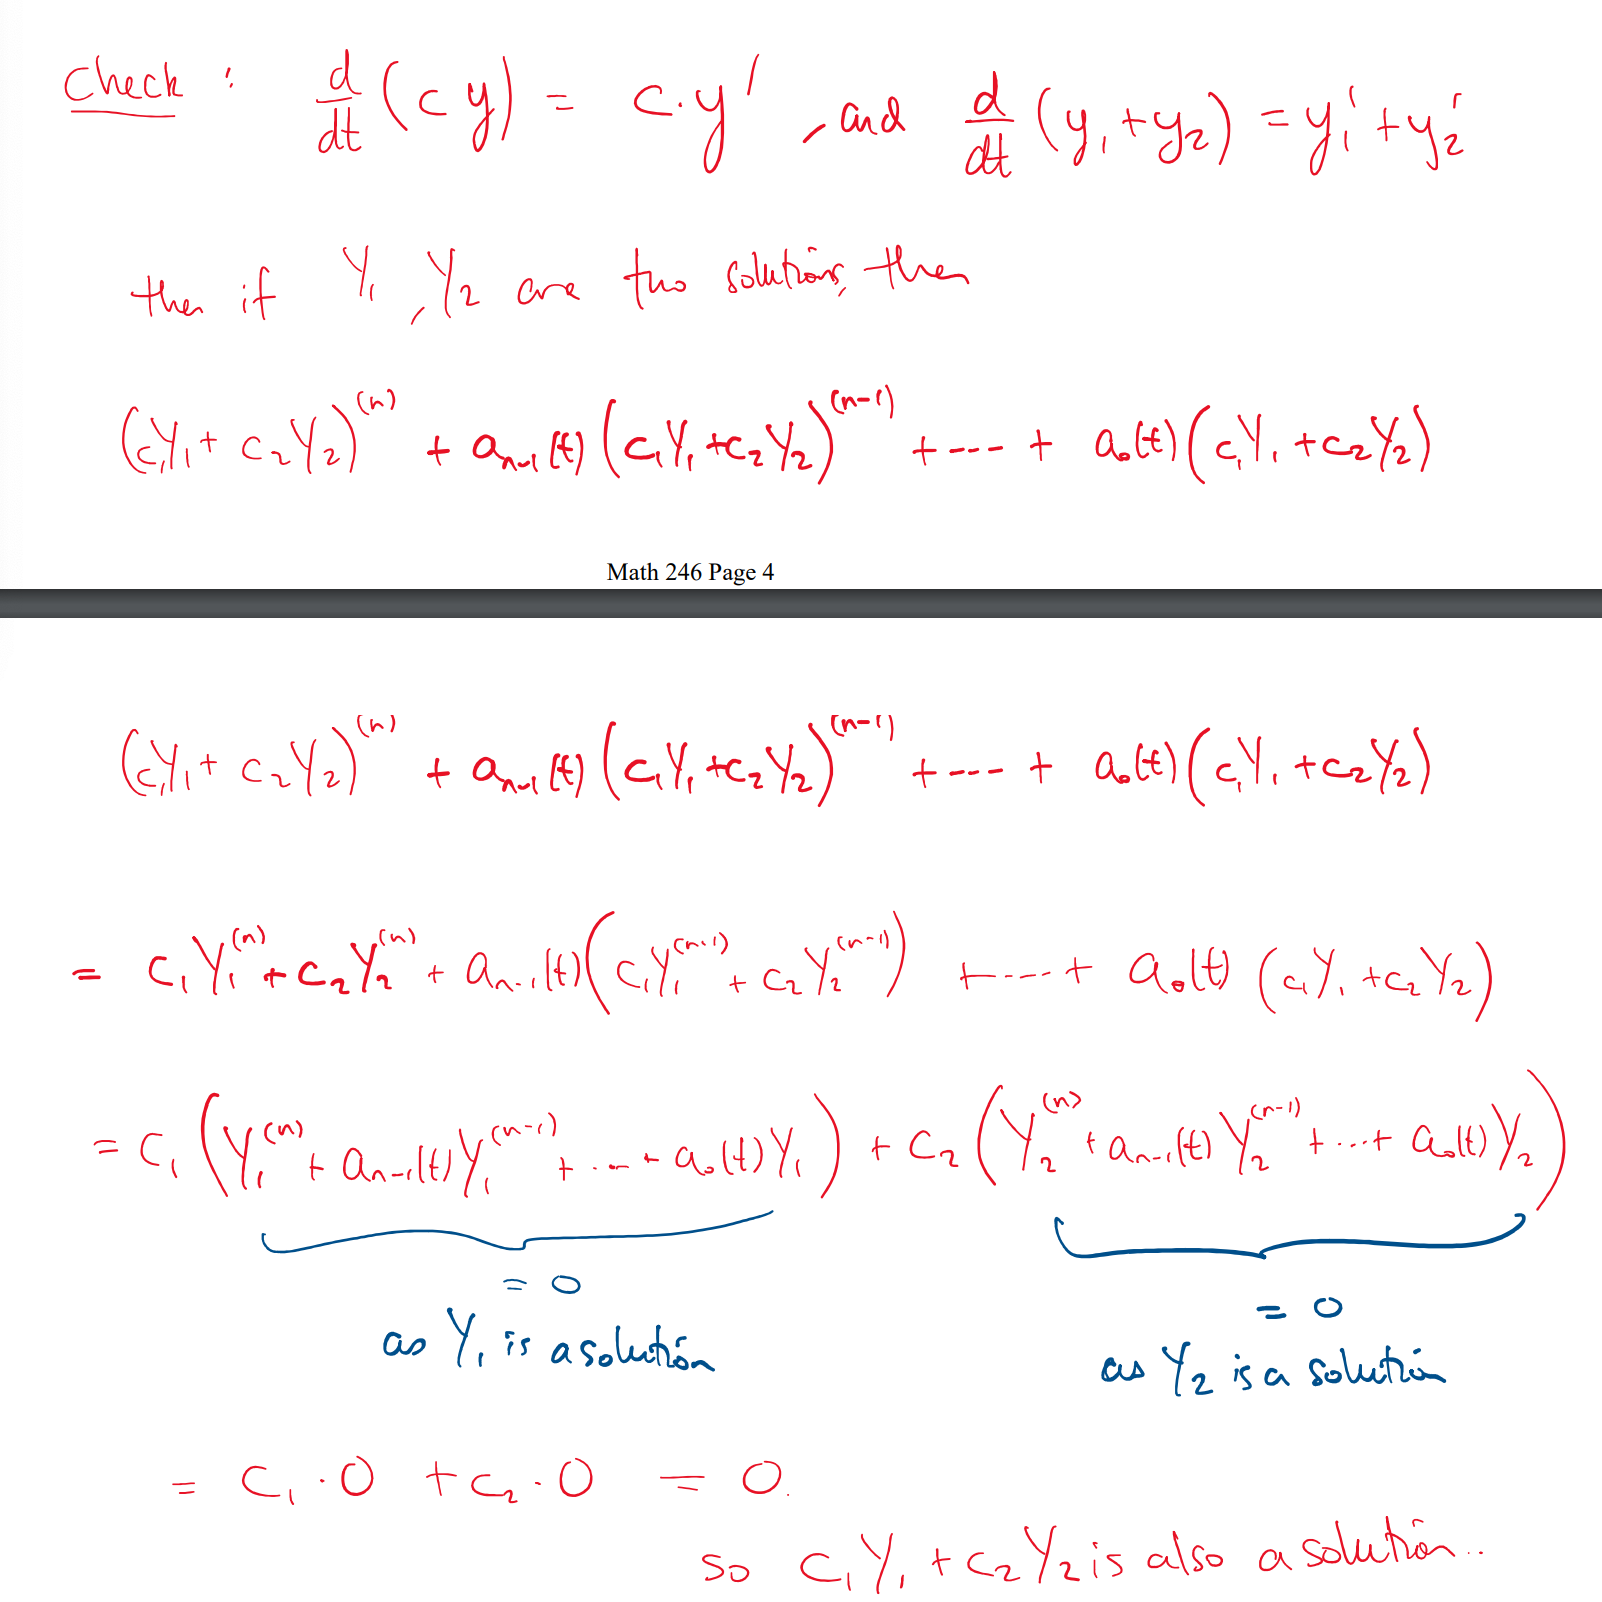 Check : d/dt (c y) = c·y′, and d/dt (y₁+y₂) = y₁′+y₂′
then if Y₁, Y₂ are two solutions, then
(c₁Y₁+c₂Y₂)⁽ⁿ⁾ + aₙ₋₁(t)(c₁Y₁+c₂Y₂)⁽ⁿ⁻¹⁾ +---+ a₀(t)(c₁Y₁+c₂Y₂)
Math 246 Page 4
(c₁Y₁+c₂Y₂)⁽ⁿ⁾ + aₙ₋₁(t)(c₁Y₁+c₂Y₂)⁽ⁿ⁻¹⁾ +---+ a₀(t)(c₁Y₁+c₂Y₂)
= c₁Y₁⁽ⁿ⁾+c₂Y₂⁽ⁿ⁾ + aₙ₋₁(t)(c₁Y₁⁽ⁿ⁻¹⁾+c₂Y₂⁽ⁿ⁻¹⁾) +----+ a₀(t)(c₁Y₁+c₂Y₂)
= c₁(Y₁⁽ⁿ⁾+aₙ₋₁(t)Y₁⁽ⁿ⁻¹⁾+...+a₀(t)Y₁) + c₂(Y₂⁽ⁿ⁾+aₙ₋₁(t)Y₂⁽ⁿ⁻¹⁾+...+a₀(t)Y₂)
= 0
as Y₁ is a solution
= 0
as Y₂ is a solution
= c₁·0 + c₂·0 = 0.
so c₁Y₁+c₂Y₂ is also a solution..